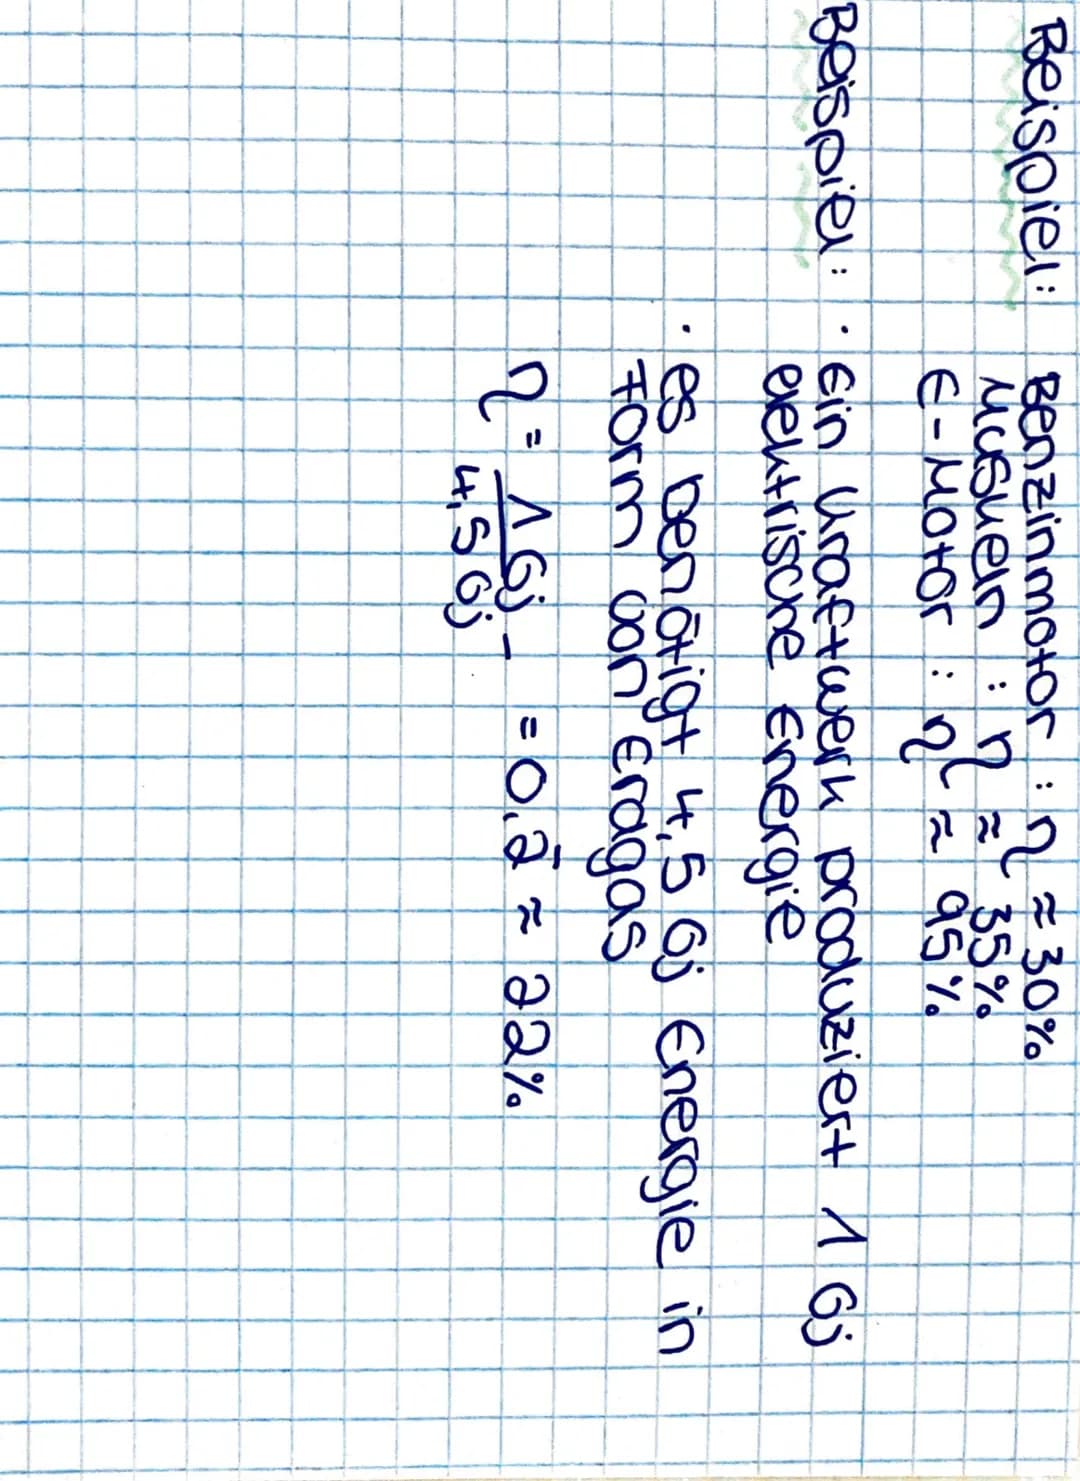 Beispiel: Benzinmotor : η ≈ 30%
Muskeln : η ≈ 35%
E-Motor : η ≈ 95%
Beispiel: · Ein Kraftwerk produziert 1 Gj
elektrische Energie
· es benötigt 4,5 Gj Energie in
Form von Erdgas
η = 1 Gj / 4,5 Gj - = 0,2̅ ≈ 22%